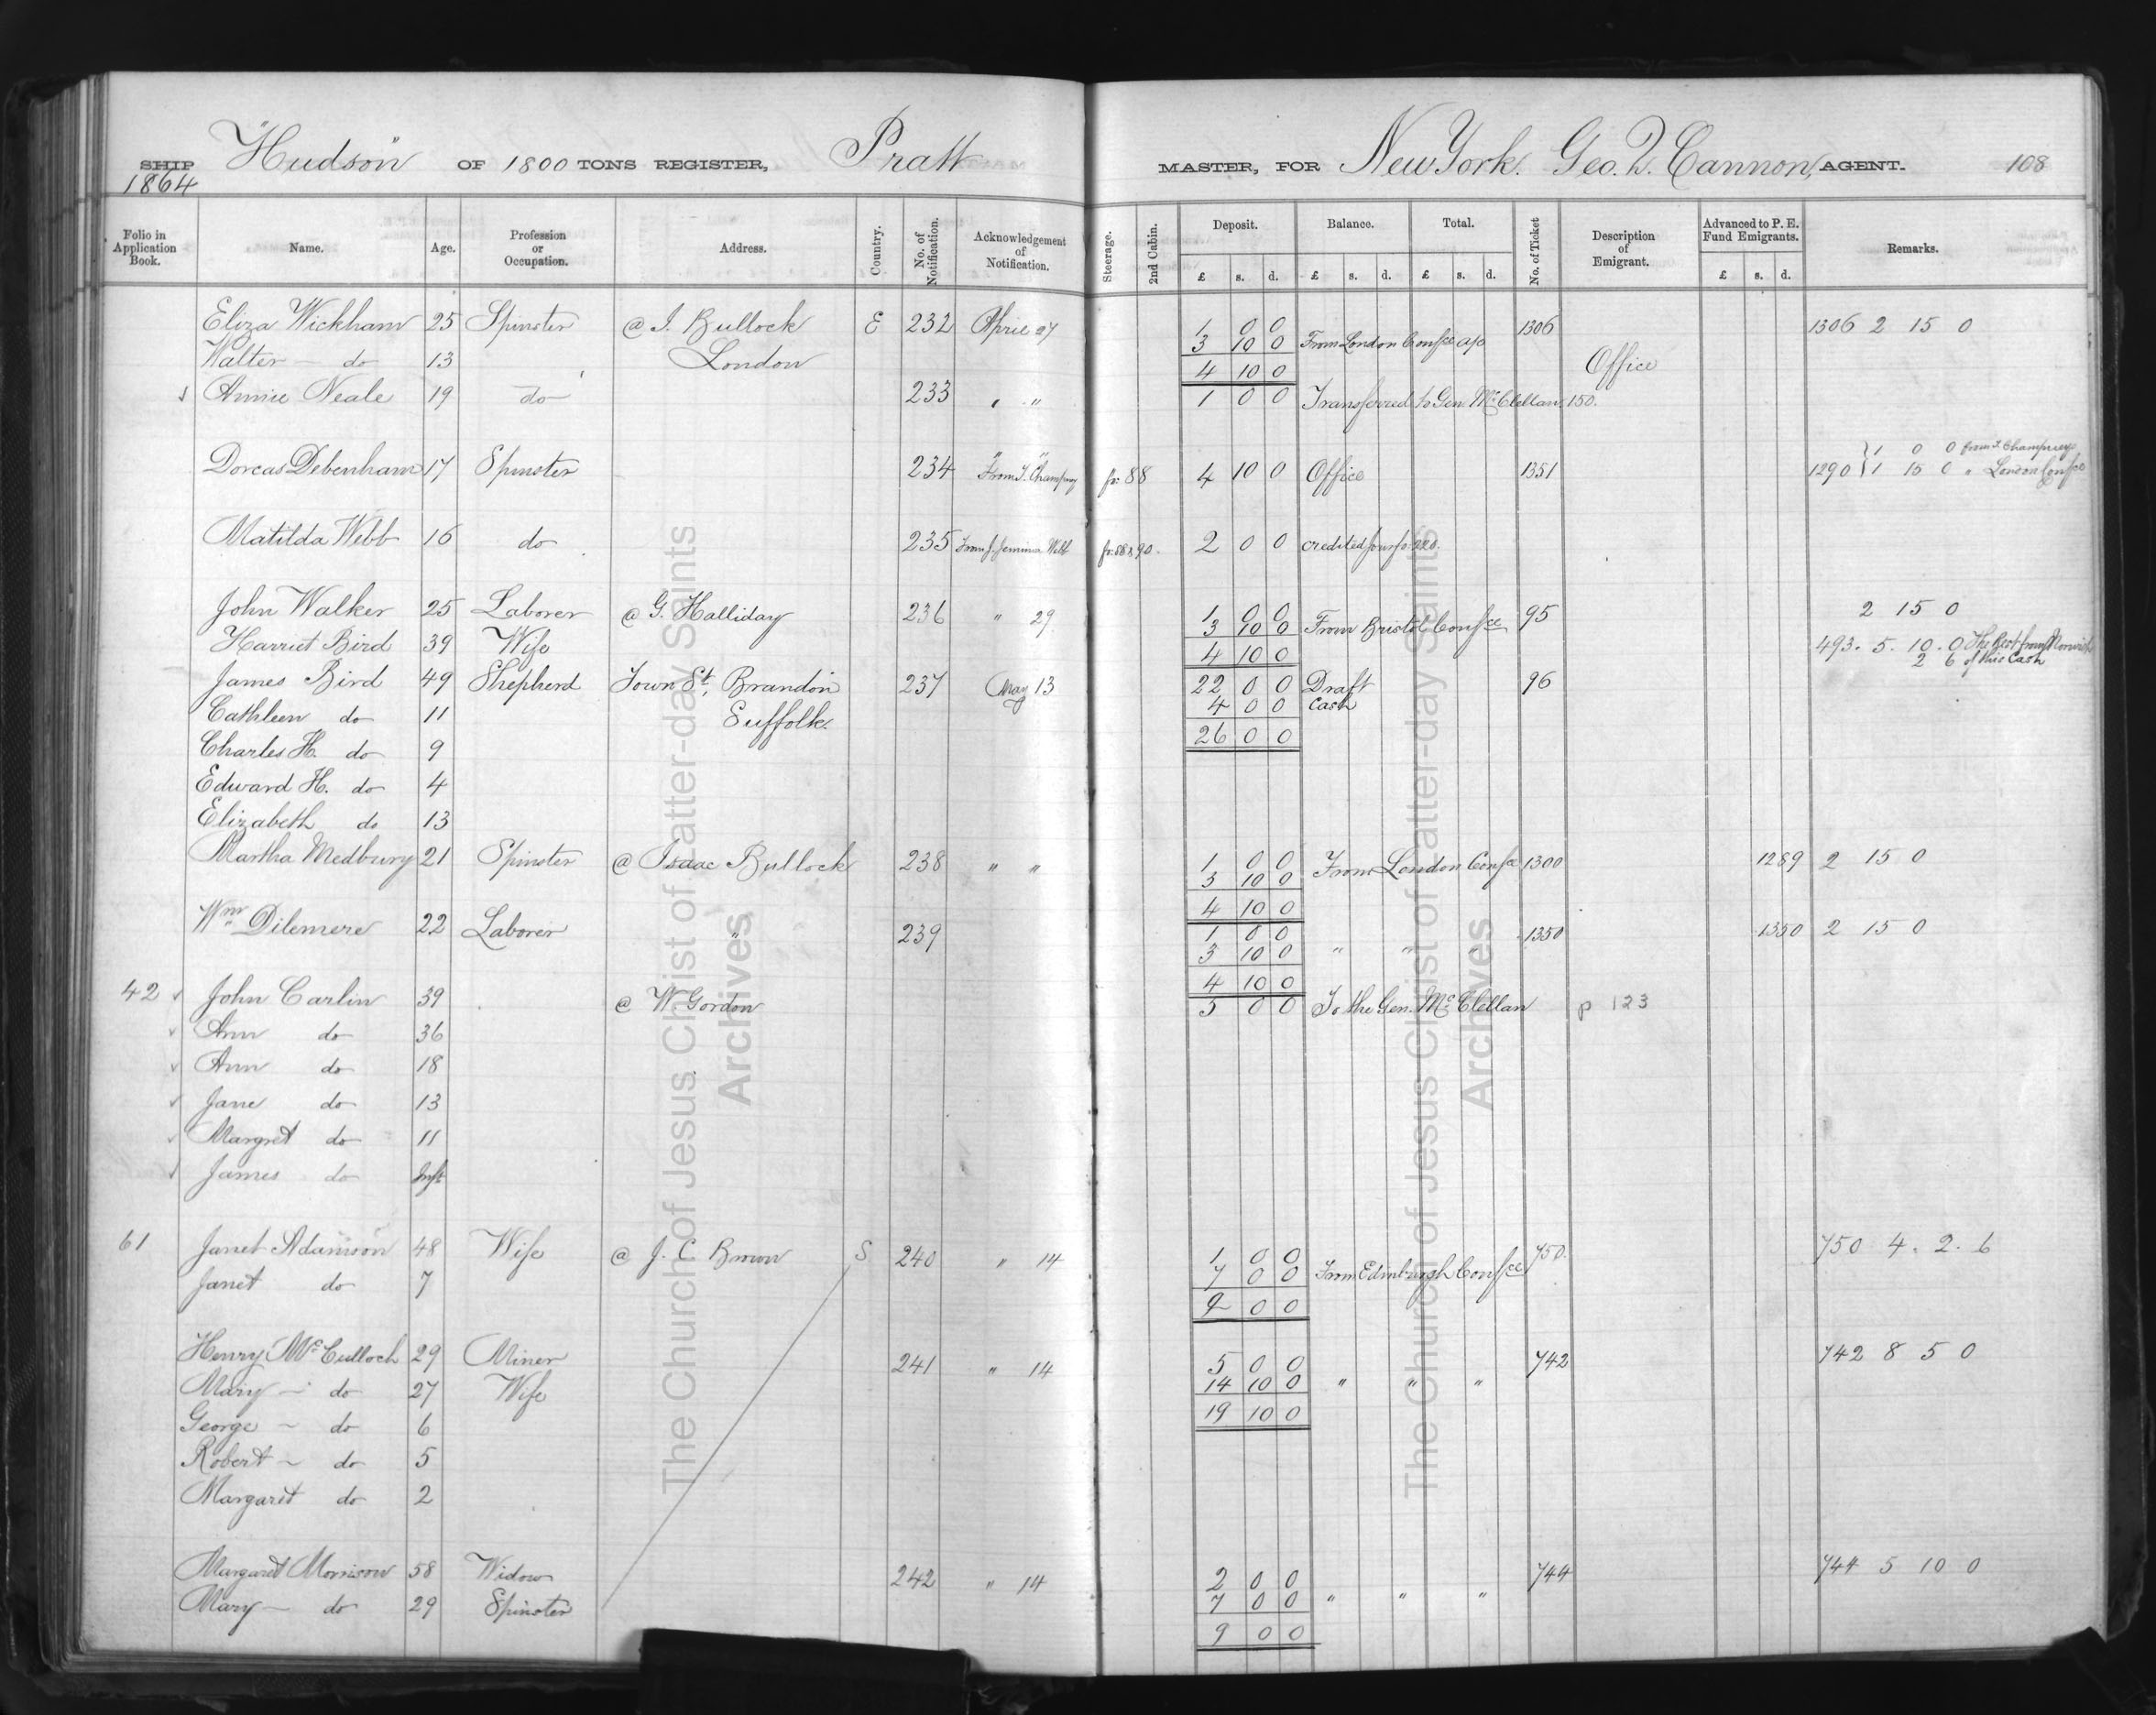 SHIP "Hudson" OF 1800 TONS REGISTER, Pratt MASTER, FOR New York. Geo. Q. Cannon, AGENT. 108
1864
Folio in Application Book. Name. Age. Profession or Occupation. Address. Country. No. of Notification. Acknowledgement of Notification. Steerage. 2nd Cabin. Deposit. Balance. Total. No. of Ticket Description of Emigrant. Advanced to P. E. Fund Emigrants. Remarks.
£ s. d. £ s. d. £ s. d. £ s. d.
Eliza Wickham 25 Spinster @ I. Bullock E 232 April 27 1 0 0 1306 1306 2 15 0
3 10 0 From London Confce a/c
Walter - do 13 London 4 10 0 Office
Annie Neale 19 do 233 " " 1 0 0 Transferred to Gen. McClellan, 150.
1 0 0 from
Dorcas Debenham 17 Spinster 234 From fo: 88 4 10 0 Office 1351 1290 1 15 0 " London Confce
Matilda Webb 16 do 235 From Jemima Webb fo: 88 & 90. 2 0 0 credited
John Walker 25 Laborer @ G. Halliday 236 " 29 1 0 0 95 2 15 0
3 10 0 From Bristol Confce
Harriet Bird 39 Wife 4 10 0 493. 5. 10. 0 The Rest from Norwich
2 6 of this Cash
James Bird 49 Shepherd Town St, Brandon 237 May 13 22 0 0 Draft 96
Cathleen do 11 Suffolk. 4 0 0 Cash
Charles H. do 9 26 0 0
Edward H. do 4
Elizabeth do 13
Martha Medbury 21 Spinster @ Isaac Bullock 238 " " 1 0 0 From London Confce 1300 1289 2 15 0
3 10 0
4 10 0
Wm Dilemere 22 Laborer " 239 1 0 0 1350 1350 2 15 0
3 10 0 " " "
4 10 0
42 John Carlin 39 @ W Gordon 5 0 0 To the Gen. McClellan p 123
Ann do 36
Ann do 18
Jane do 13
Margret do 11
James do Inft
61 Janet Adamson 48 Wife @ J. C. Brown S 240 " 14 1 0 0 750. 750 4. 2. 6
Janet do 7 7 0 0 From Edinburgh Confce
9 0 0
Henry McCulloch 29 Miner 241 " 14 5 0 0 742 742 8 5 0
Mary - do 27 Wife 14 10 0 " " "
George - do 6 19 10 0
Robert - do 5
Margaret do 2
Margaret Morrison 58 Widow 242 " 14 2 0 0 744 744 5 10 0
Mary - do 29 Spinster 7 0 0 " " "
9 0 0
The Church of Jesus Christ of Latter-day Saints
Archives
The Church of Jesus Christ of Latter-day Saints
Archives